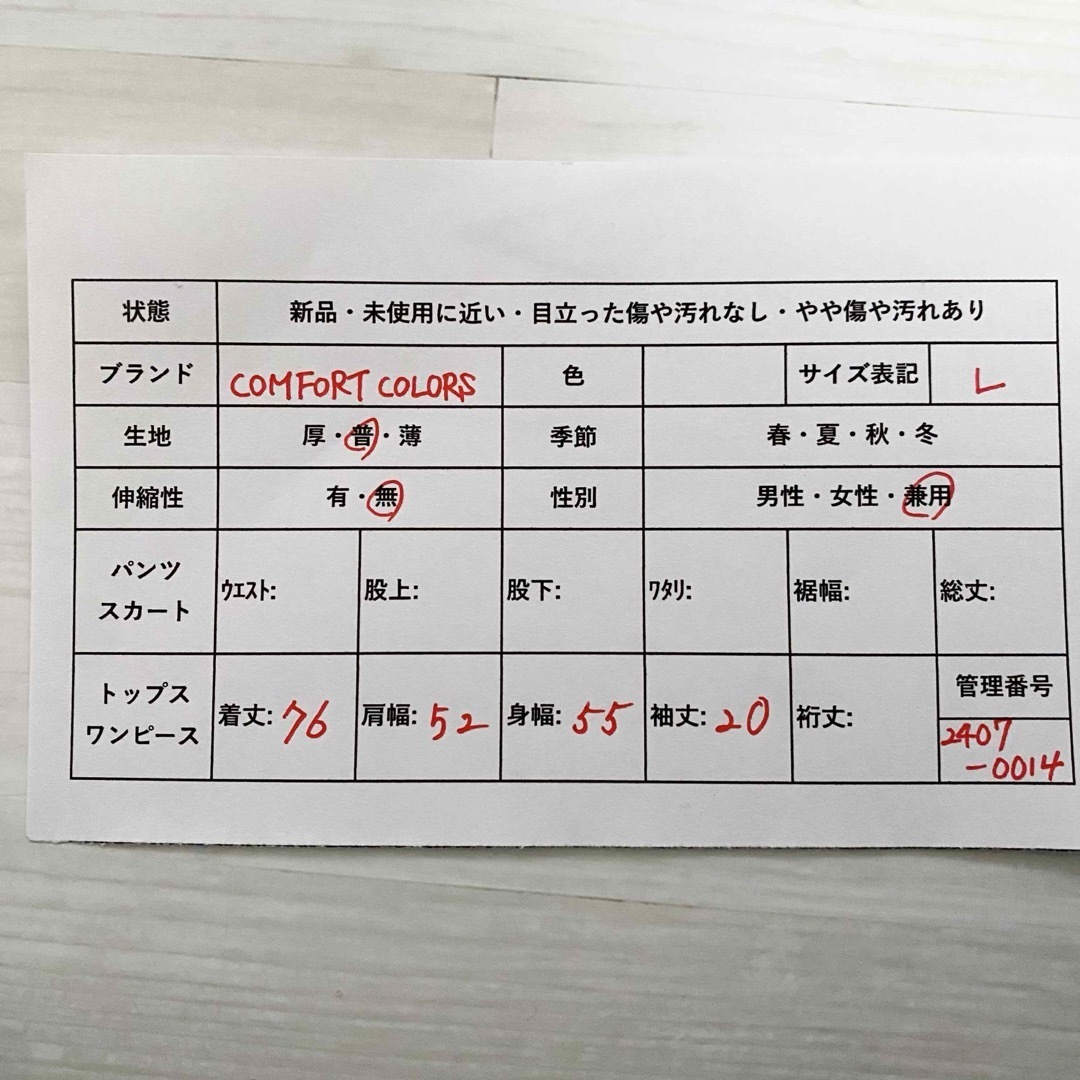 状態 新品・未使用に近い・目立った傷や汚れなし・やや傷や汚れあり
ブランド COMFORT COLORS 色 サイズ表記 L
生地 厚・普・薄 季節 春・夏・秋・冬
伸縮性 有・無 性別 男性・女性・兼用
パンツ
スカート
ｳｴｽﾄ: 股上: 股下: ﾜﾀﾘ: 裾幅: 総丈:
トップス
ワンピース
着丈: 76 肩幅: 52 身幅: 55 袖丈: 20 裄丈:
管理番号
2407
-0014